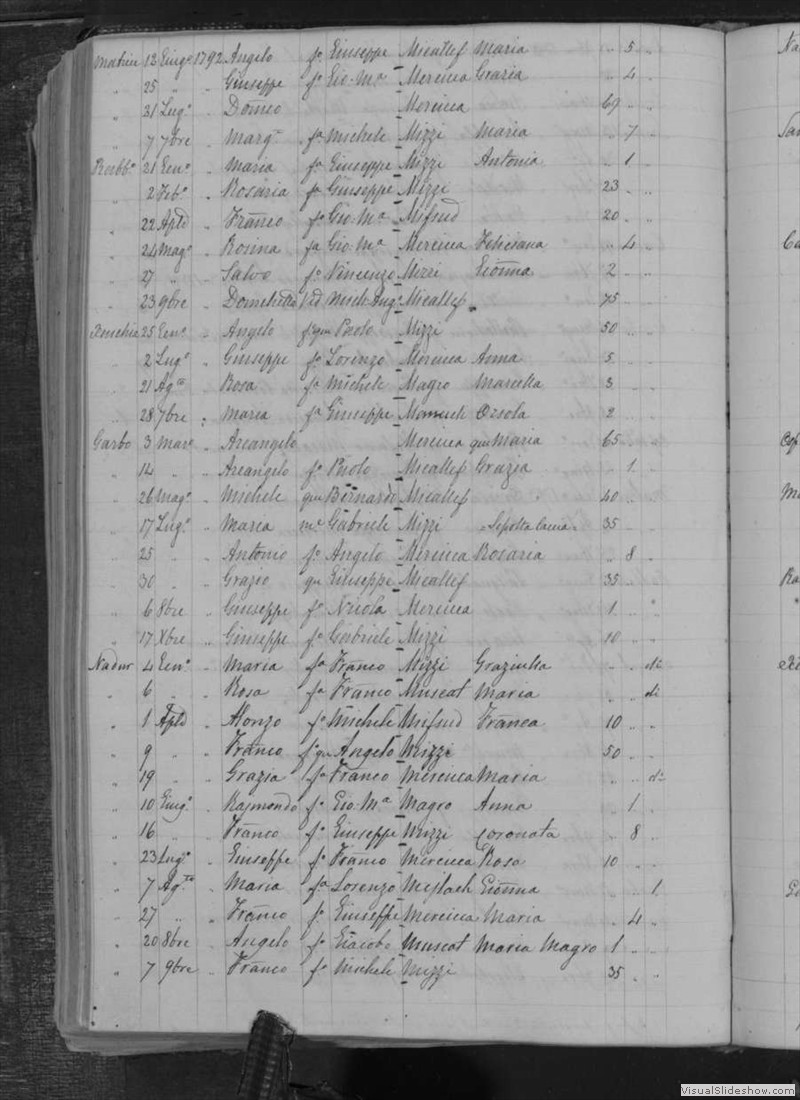 Matrice 12 Giug.o 1792 Angelo f.o Giuseppe Micallef Maria " 5 "
" 25 " " Giuseppe f.o Gio. M.a Mercieca Grazia " 4 "
" 31 Lug.o " Domco Mercieca 69 " "
" 7 7bre " Marg.ta f.a Michele Mizzi Maria " 7 "
Rabb.o 21 Gen.o " Maria f.a Giuseppe Mizzi Antonia " 1 "
" 2 Feb.o " Rosaria f.a Giuseppe Mizzi 23 " "
" 22 Apld " Franco f.o Gio. M.a Mifsud 20 " "
" 24 Mag.o " Rosina f.a Gio. M.a Mercieca Feliciana " 4 "
" 27 " " Salvo f.o Vincenzo Mizzi Gionna 2 " "
" 23 9bre " Mich. Ang.o Micallef 75 " "
25 Gen.o " Angelo f. qm Paolo Mizzi 50 " "
" 2 Lug.o " Giuseppe f.o Lorenzo Mercieca Anna 5 " "
" 21 Ag.to " Rosa f.a Michele Magro Marietta 3 " "
" 28 7bre " Maria f.a Giuseppe Orsola 2 " "
Garbo 3 Mar.o " Arcangelo Mercieca qm Maria 65 " "
" 14 " " Arcangelo f.o Paolo Micallef Grazia " 1 "
" 26 Mag.o " Michele qm Bernardo Micallef 40 " "
" 17 Lug.o " Maria m.e Gabriele Mizzi 35 " "
" 25 " " Antonio f.o Angelo Mercieca Rosaria " 8 "
" 30 " " Grazio qm Giuseppe Micallef 35 " "
" 6 8bre " Giuseppe f.o Nicola Mercieca 1 " "
" 17 Xbre " Giuseppe f.o Gabriele Mizzi 10 " "
Nadur 4 Gen.o " Maria f.a Franco Mizzi Graziulla " " di
" 6 " " Rosa f.a Franco Muscat Maria " " di
" 1 Apld " Alonzo f.o Michele Mifsud Franca 10 " "
" 9 " " Franco f. qm Angelo Mizzi 50 " "
" 19 " " Grazia f.a Franco Mercieca Maria " " di
" 10 Giug.o " Raimondo f.o Gio. M.a Magro Anna " 1 "
" 16 " " Franco f.o Giuseppe Mizzi Coronata " 8 "
" 23 Lug.o " Giuseppe f.o Franco Mercieca Rosa 10 " "
" 7 Ag.to " Maria f.a Lorenzo Gionna " " 1
" 27 " " Franco f.o Giuseppe Mercieca Maria " 4 "
" 20 8bre " Angelo f.o Giacobe Muscat Maria Magro 1 " "
" 7 9bre " Franco f.o Michele Mizzi 35 " "
VisualSlideshow.com